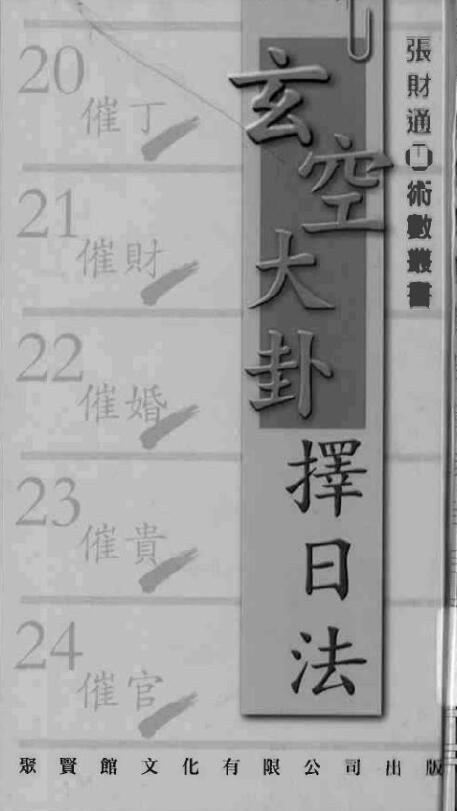 張財通術數叢書
玄空大卦擇日法
20
催丁
21
催財
22
催婚
23
催貴
24
催官
聚賢館文化有限公司出版